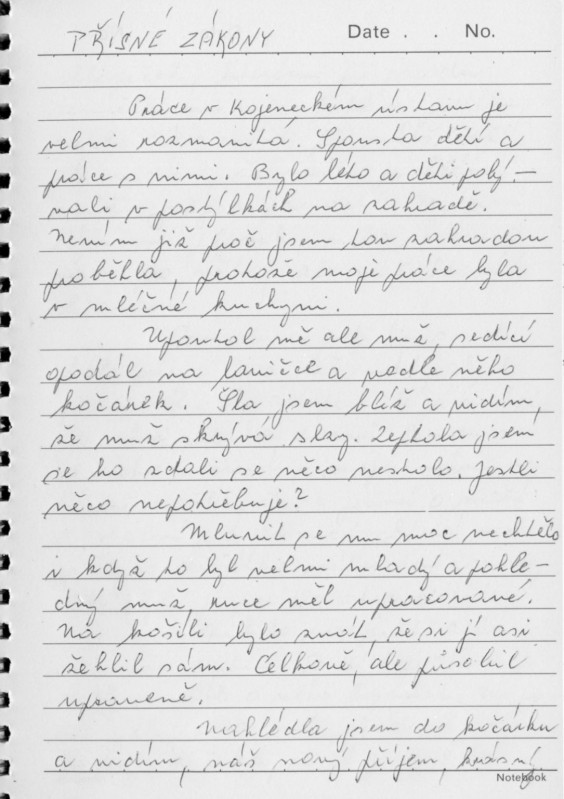 PŘÍSNÉ ZÁKONY Date . . No.
Práce v Kojeneckém ústavu je
velmi rozmanitá. Spousta dětí a
práce s nimi. Bylo léto a děti pobý-
vali v postýlkách na zahradě.
Nevím již proč jsem tou zahradou
proběhla, protože moje práce byla
v mléčné kuchyni.
Upoutal mě ale muž, sedící
opodál na lavičce a vedle něho
kočárek. Šla jsem blíž a vidím,
že muž skrývá slzy. Zeptala jsem
se ho zdali se něco nestalo. Jestli
něco nepotřebuje?
Mluvit se mu moc nechtělo
i když to byl velmi mladý a pohle-
dný muž, ruce měl upracované.
Na košili bylo znát, že si jí asi
žehlil sám. Celkově, ale působil
upraveně.
Nahlédla jsem do kočárku
a vidím, náš nový příjem, krásný
Notebook